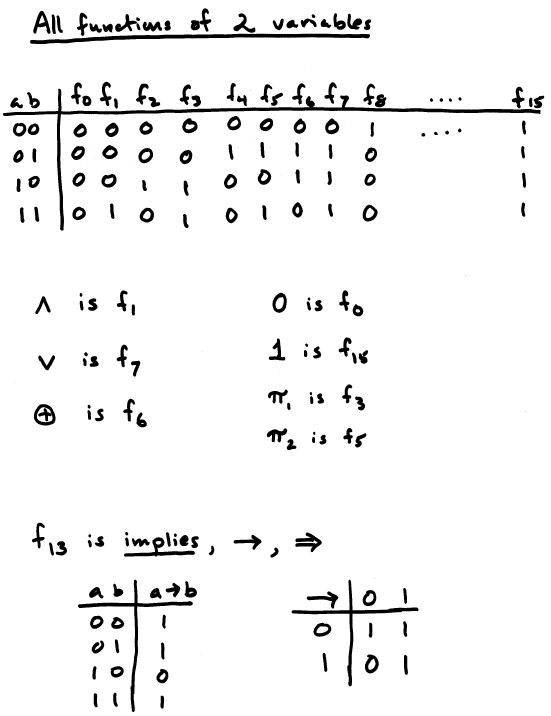 All functions of 2 variables
a b | f₀ f₁ f₂ f₃ f₄ f₅ f₆ f₇ f₈ .... f₁₅
0 0 | 0 0 0 0 0 0 0 0 1 .... 1
0 1 | 0 0 0 0 1 1 1 1 0 1
1 0 | 0 0 1 1 0 0 1 1 0 1
1 1 | 0 1 0 1 0 1 0 1 0 1
∧ is f₁
∨ is f₇
⊕ is f₆
0 is f₀
1 is f₁₅
π₁ is f₃
π₂ is f₅
f₁₃ is implies, →, ⇒
a b | a→b
0 0 | 1
0 1 | 1
1 0 | 0
1 1 | 1
→ | 0 1
0 | 1 1
1 | 0 1